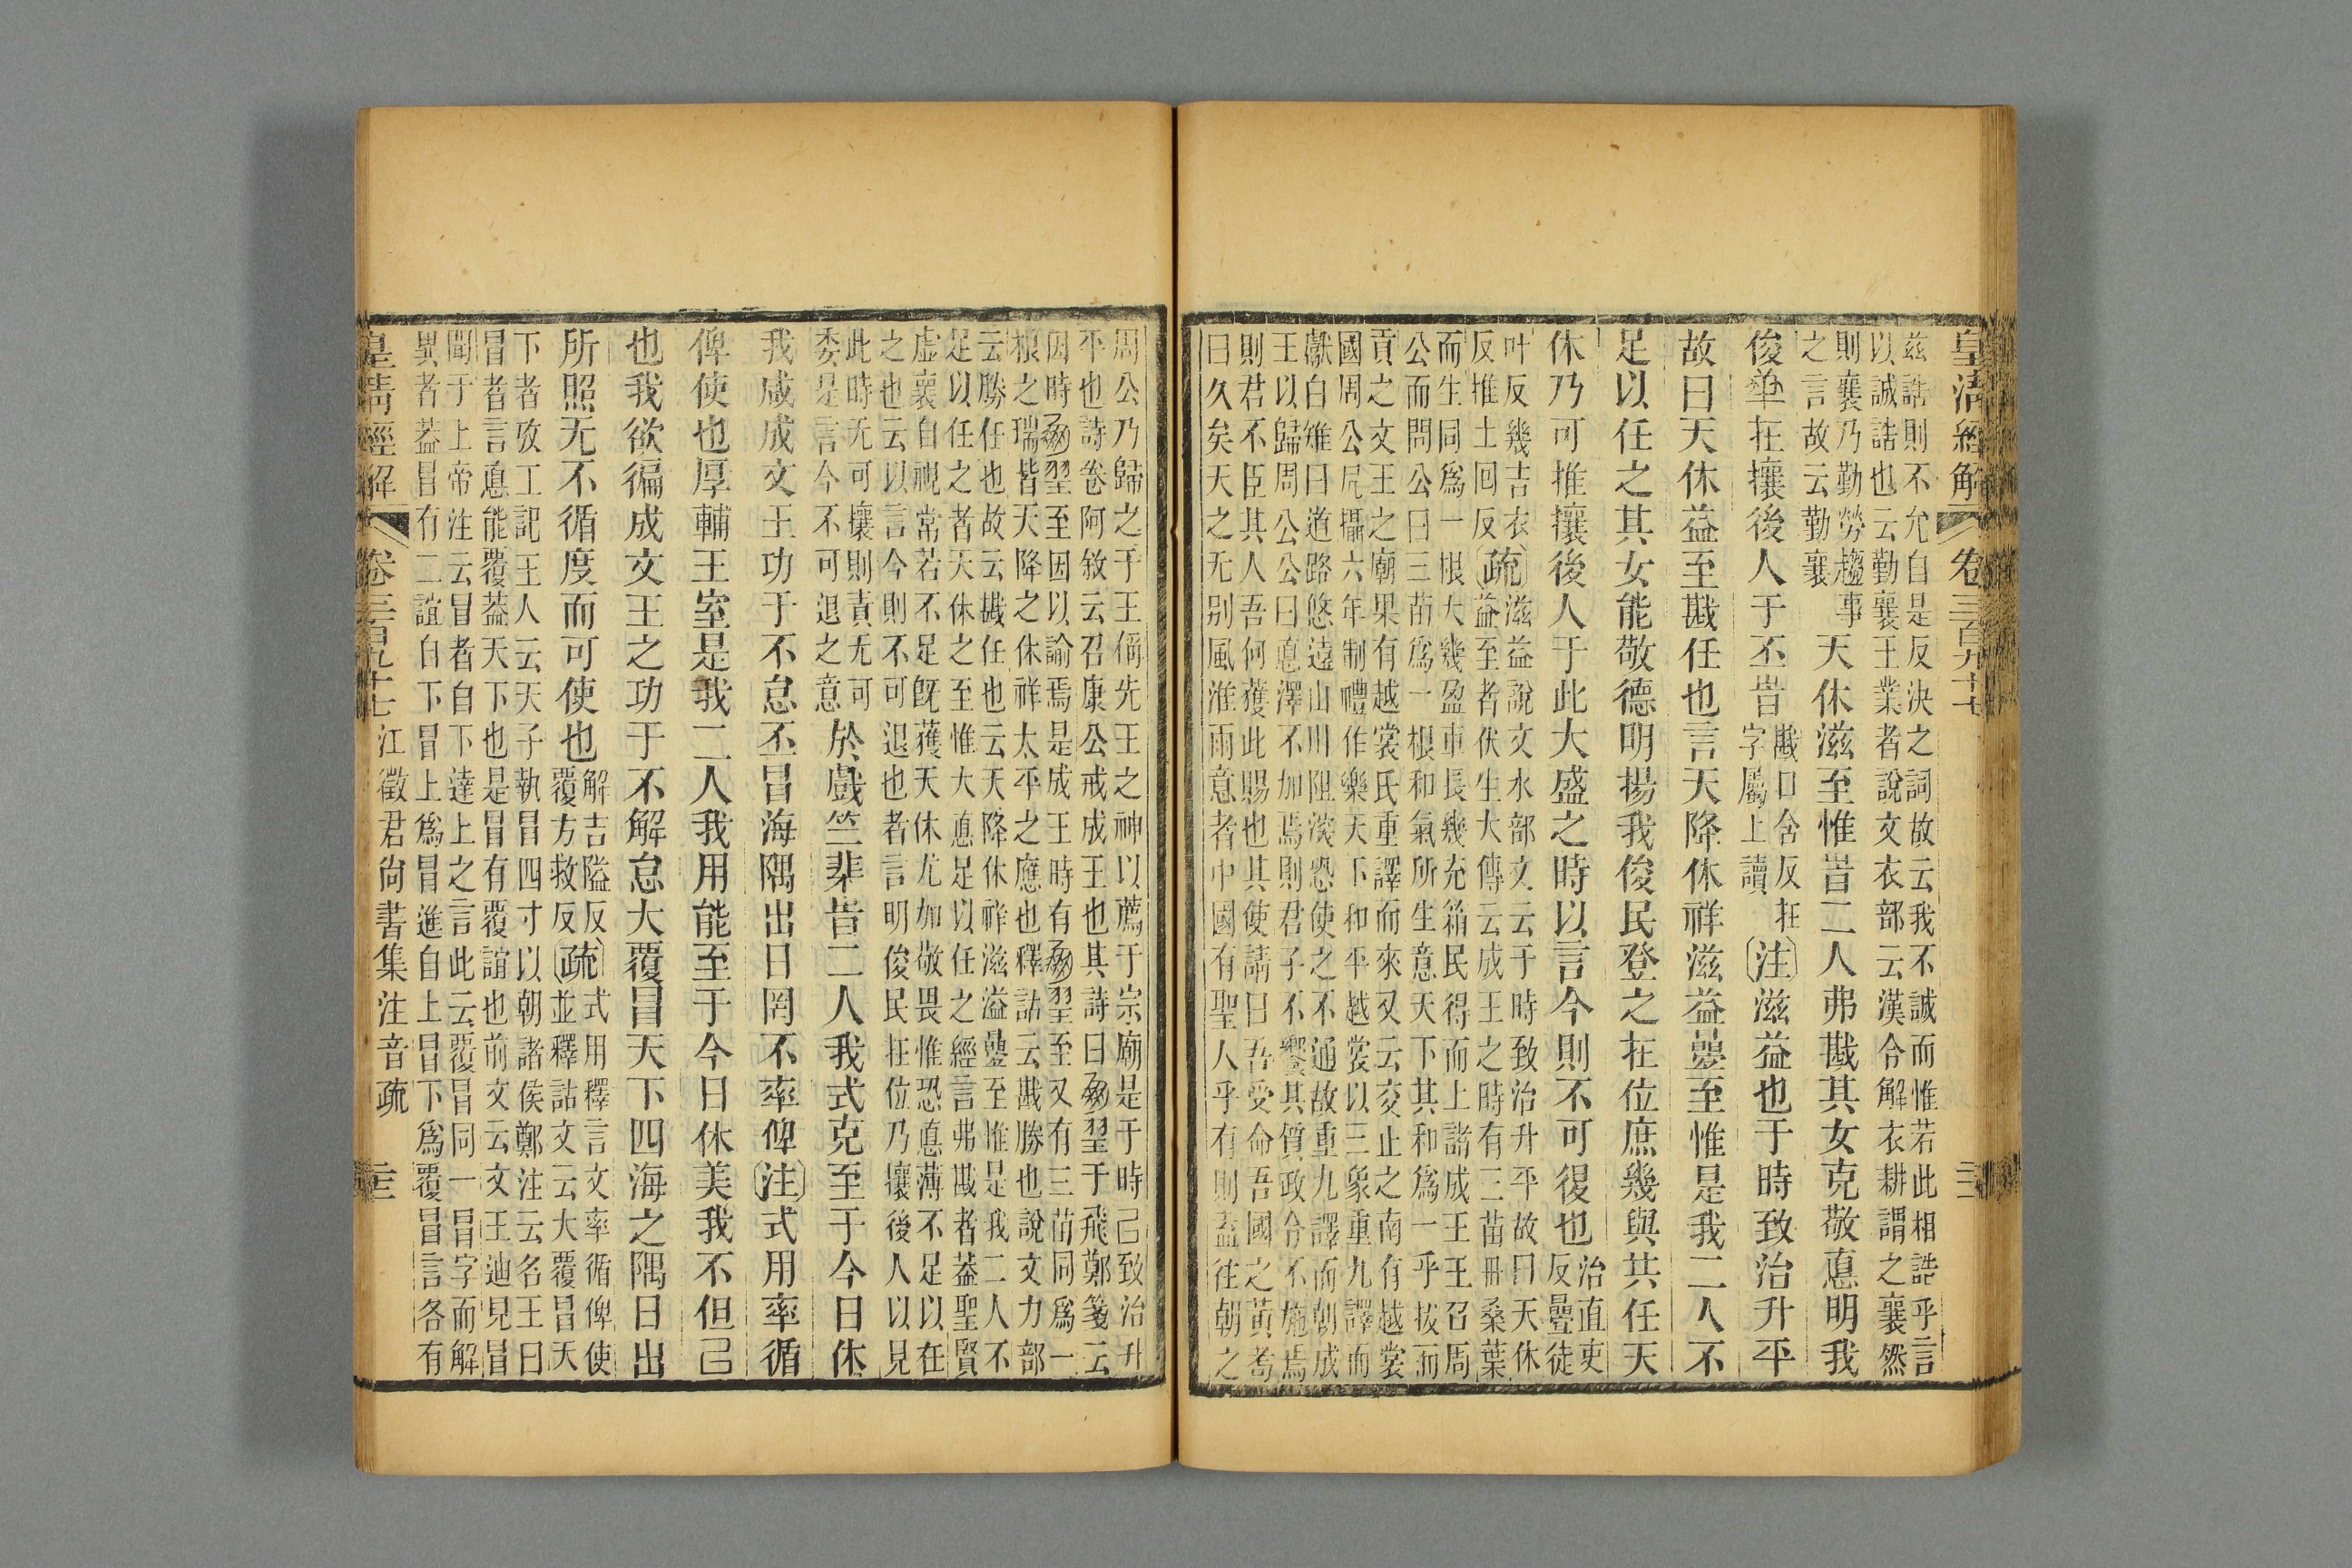 皇清經解　卷三百九十七
茲誥則不允自是反決之詞故云我不誠而惟若此相誥乎言
以誠誥也云勤襄王業者說文衣部云漢令解衣耕謂之襄然
則襄乃勤勞趨事
之言故云勤襄
天休滋至惟旹二人弗戡其女克敬悳明我
俊在攘後人于丕旹
戡口含反在
字屬上讀
注滋益也于時致治升平
故曰天休益至戡任也言天降休祥滋益曡至惟是我二人不
足以任之其女能敬德明揚我俊民登之在位庶幾與共任天
休乃可推攘後人于此大盛之時以言今則不可復也
治直吏
反曡徒
叶反幾吉衣
反推土回反
疏
滋益說文水部文云于時致治升平故曰天休
益至者伏生大傳云成王之時有三苗冊桑葉
而生同爲一根大幾盈車長幾充箱民得而上諸成王王召周
公而問公曰三苗爲一根和氣所生意天下其和爲一乎拔而
貢之文王之廟果有越裳氏重譯而來又云交止之南有越裳
國周公凥攝六年制禮作樂天下和平越裳以三象重九譯而
獻白雉曰道路悠遠山川阻深恐使之不通故重九譯而朝成
王以歸周公公曰悳澤不加焉則君子不饗其質政令不施焉
則君不臣其人吾何獲此賜也其使請曰吾受命吾國之黃耇
曰久矣天之无別風淮雨意者中國有聖人乎有則盍往朝之
周公乃歸之于王偁先王之神以薦于宗廟是于時己致治升
平也詩卷阿敘云召康公戒成王也其詩曰于飛鄭箋云
因時至因以諭焉是成王時有至又有三苗同爲一
根之瑞皆天降之休祥太平之應也釋詁云戡勝也說文力部
云勝任也故云戡任也云天降休祥滋溢曡至惟是我二人不
足以任之者天休之至惟大悳足以任之經言弗戡者葢聖賢
虛襄自視常若不足旣獲天休尤加敬畏惟恐悳薄不足以在
之也云以言今則不可退也者言明俊民在位乃攘後人以見
此時无可攘則責无可
委是言今不可退之意
於戲竺棐旹二人我式克至于今日休
我咸成文王功于不怠丕冒海隅出日罔不率俾注式用率循
俾使也厚輔王室是我二人我用能至于今日休美我不但己
也我欲徧成文王之功于不解怠大覆冒天下四海之隅日出
所照无不循度而可使也
解吉隘反
覆方救反
疏
式用釋言文率循俾使
並釋詁文云大覆冒天
下者攷工記王人云天子執冒四寸以朝諸侯鄭注云名王曰
冒者言悳能覆葢天下也是冒有覆誼也前文云文王迪見冒
聞于上帝注云冒者自下達上之言此云覆冒同一冒字而解
異者葢冒有二誼自下冒上爲冒進自上冒下爲覆冒言各有
皇清經解　卷三百九十七　江徵君尙書集注音疏